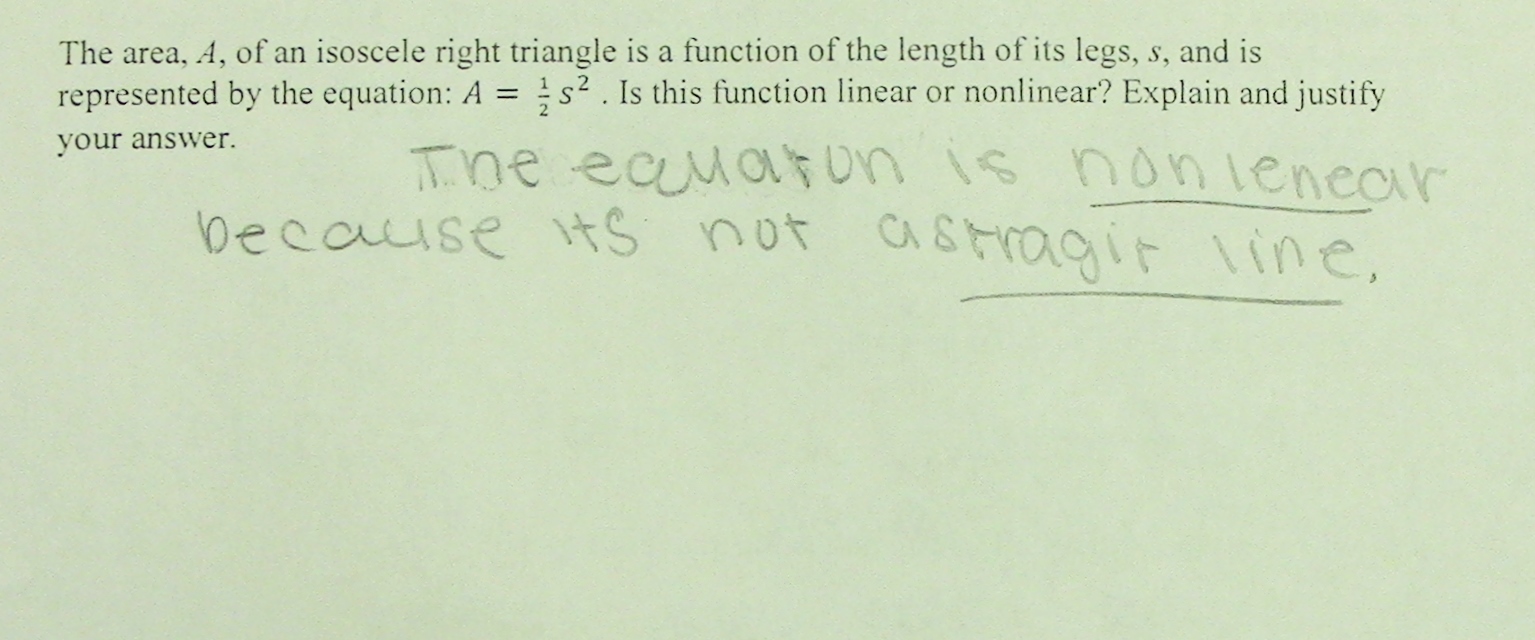 The area, A, of an isoscele right triangle is a function of the length of its legs, s, and is
represented by the equation: A = ½ s² . Is this function linear or nonlinear? Explain and justify
your answer.
The equatun is nonlenear
because its not a stragit line.